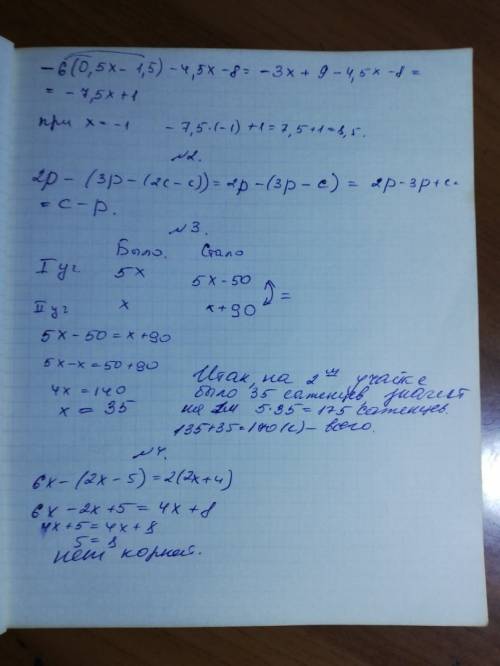 -6(0,5x-1,5)-4,5x-8= -3x+9-4,5x-8=
= -7,5x+1
при x=-1 -7,5·(-1)+1=7,5+1=8,5.
№2.
2p-(3p-(2c-c))=2p-(3p-c)= 2p-3p+c=
=c-p.
№3.
Было. Стало
I уч. 5x 5x-50
II уч x x+90 =
5x-50=x+90
5x-x=50+90
4x=140
x=35
Итак, на 2ом участке
было 35 саженцев значит
на 1м 5·35=175 саженцев.
135+35=170(с)- всего.
№4.
6x-(2x-5)=2(2x+4)
6x-2x+5=4x+8
4x+5=4x+8
5=8
нет корней.